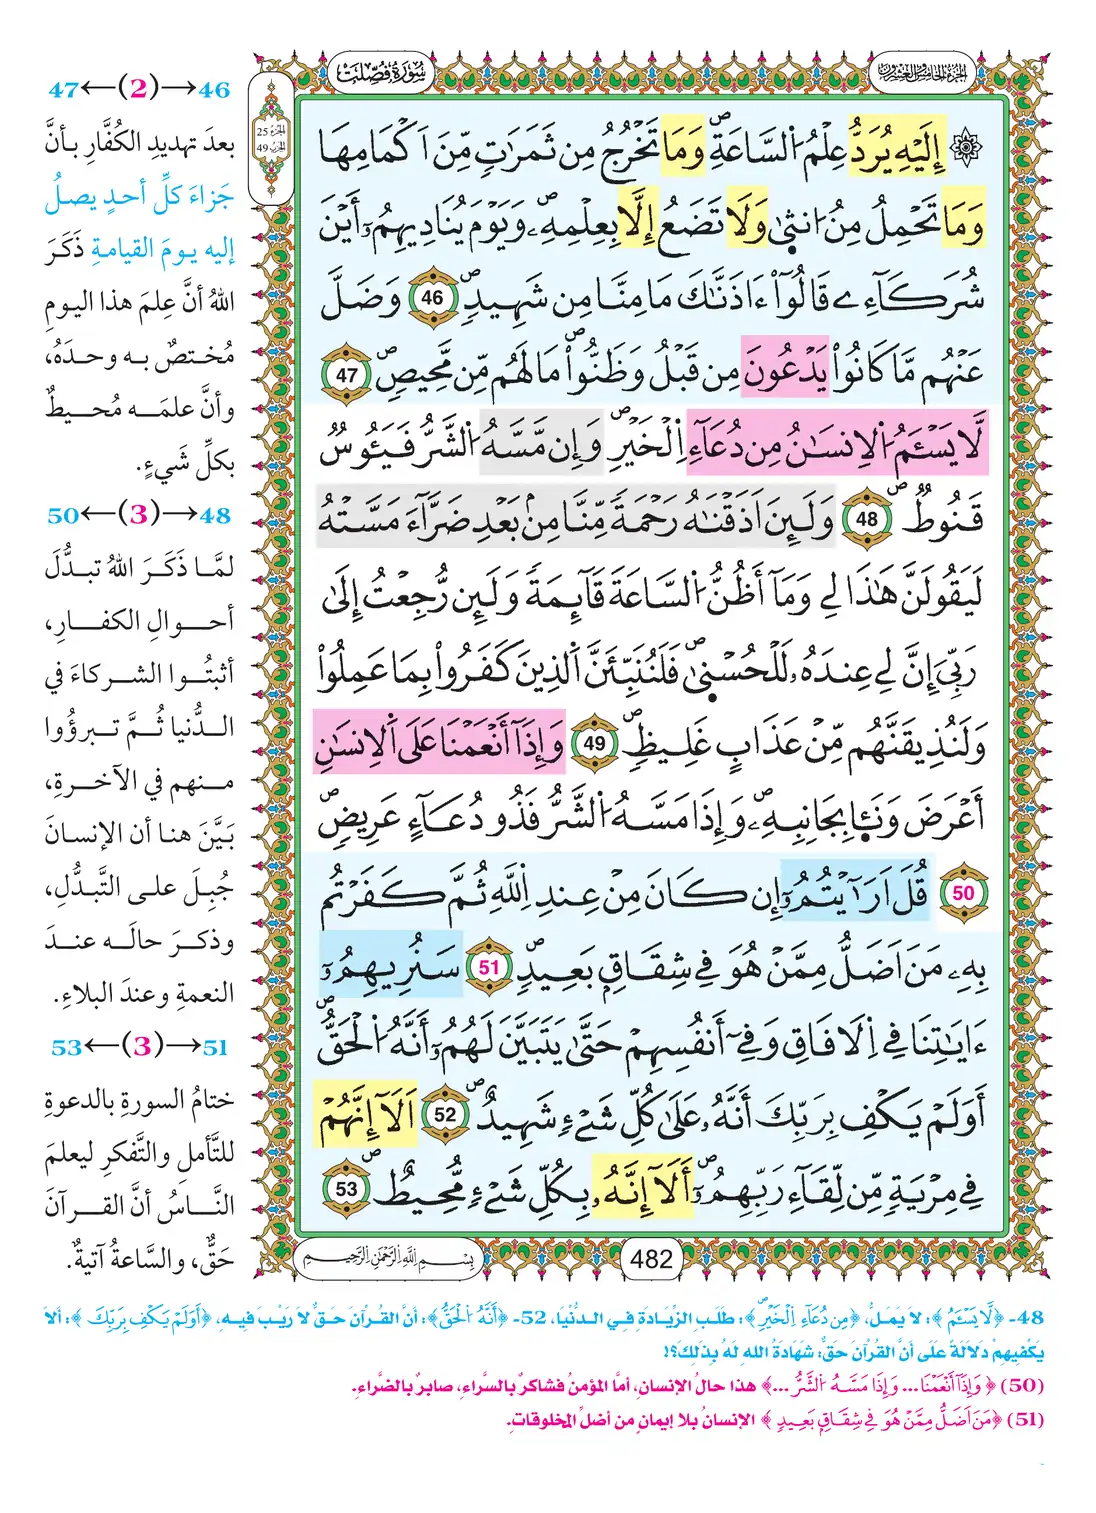 سُورَةُ فُصِّلَتْ
الجزء الخامس والعشرون
الجزء 25
الحزب 49
إِلَيْهِ يُرَدُّ عِلْمُ اُ۬لسَّاعَةِۖ وَمَا تَخْرُجُ مِن ثَمَرَٰتٖ مِّنَ اَكْمَامِهَا
وَمَا تَحْمِلُ مِنُ ا۟نث۪يٰ وَلَا تَضَعُ إِلَّا بِعِلْمِهِۦۖ وَيَوْمَ يُنَادِيهِمُۥٓ أَيْنَ
شُرَكَآءِے قَالُوٓاْ ءَاذَنَّٰكَ مَا مِنَّا مِن شَهِيدٖۖ 46 وَضَلَّ
عَنْهُم مَّا كَانُواْ يَدْعُونَ مِن قَبْلُ وَظَنُّواْۖ مَا لَهُم مِّن مَّحِيصٖۖ 47
لَّا يَسْـَٔمُ اُ۬لِانسَٰنُ مِن دُعَآءِ اِ۬لْخَيْرِۖ وَإِن مَّسَّهُ اُ۬لشَّرُّ فَيَـُٔوسٞ
قَنُوطٞۖ 48 وَلَئِنَ اَذَقْنَٰهُ رَحْمَةٗ مِّنَّا مِنۢ بَعْدِ ضَرَّآءَ مَسَّتْهُ
لَيَقُولَنَّ هَٰذَا لِے وَمَآ أَظُنُّ اُ۬لسَّاعَةَ قَآئِمَةٗ وَلَئِن رُّجِعْتُ إِلَىٰ
رَبِّيَ إِنَّ لِے عِندَهُۥ لَلْحُسْن۪يٰۖ فَلَنُنَبِّئَنَّ اَ۬لذِينَ كَفَرُواْ بِمَا عَمِلُواْ
وَلَنُذِيقَنَّهُم مِّنْ عَذَابٍ غَلِيظٖۖ 49 وَإِذَآ أَنْعَمْنَا عَلَى اَ۬لِانسَٰنِ
أَعْرَضَ وَنَـَٔا بِجَانِبِهِۦۖ وَإِذَا مَسَّهُ اُ۬لشَّرُّ فَذُو دُعَآءٍ عَرِيضٖۖ
50 قُلَ اَرَٰٓيْتُمُۥٓ إِن كَانَ مِنْ عِندِ اِ۬للَّهِ ثُمَّ كَفَرْتُم
بِهِۦ مَنَ اَضَلُّ مِمَّنْ هُوَ فِے شِقَاقِۢ بَعِيدٖۖ 51 سَنُرِيهِمُۥٓ
ءَايَٰتِنَا فِے اِ۬لَافَاقِ وَفِےٓ أَنفُسِهِمْ حَتَّىٰ يَتَبَيَّنَ لَهُمُۥٓ أَنَّهُ اُ۬لْحَقُّۖ
أَوَلَمْ يَكْفِ بِرَبِّكَ أَنَّهُۥ عَلَىٰ كُلِّ شَےْءٖ شَهِيدٌۖ 52 اَلَآ إِنَّهُمْ
فِے مِرْيَةٖ مِّن لِّقَآءِ رَبِّهِمُۥٓۖ أَلَآ إِنَّهُۥ بِكُلِّ شَےْءٖ مُّحِيطٞۖ 53
482
بِسْمِ اللَّهِ الرَّحْمَٰنِ الرَّحِيمِ
46→(2)←47
بعدَ تهديدِ الكُفَّارِ بأنَّ
جَزاءَ كلِّ أحدٍ يصلُ
إليه يومَ القيامةِ ذَكَرَ
اللهُ أنَّ عِلمَ هذا اليومِ
مُختصٌ به وحدَهُ،
وأنَّ علمَه مُحيطٌ
بكلِّ شَيءٍ.
48→(3)←50
لمَّا ذَكَرَ اللهُ تبدُّلَ
أحوالِ الكفارِ،
أثبتُوا الشركاءَ في
الدُّنيا ثُمَّ تبرؤُوا
منهم في الآخرةِ،
بَيَّنَ هنا أن الإنسانَ
جُبِلَ على التَّبدُّلِ،
وذكرَ حالَه عندَ
النعمةِ وعندَ البلاءِ.
51→(3)←53
ختامُ السورةِ بالدعوةِ
للتَّأملِ والتَّفكرِ ليعلمَ
النَّاسُ أنَّ القرآنَ
حَقٌّ، والسَّاعةُ آتيةٌ.
48- ﴿لَّا يَسْـَٔمُ﴾: لَا يَمَلُّ، ﴿مِن دُعَآءِ اِ۬لْخَيْرِۖ﴾: طَلَبِ الزِّيَادَةِ فِي الدُّنْيَا، 52- ﴿أَنَّهُ اُ۬لْحَقُّ﴾: أَنَّ القُرْآنَ حَقٌّ لَا رَيْبَ فِيهِ، ﴿أَوَلَمْ يَكْفِ بِرَبِّكَ﴾: أَلَا
يَكْفِيهِمْ دَلَالَةً عَلَى أَنَّ القُرْآنَ حَقٌّ: شَهَادَةُ اللهِ لَهُ بِذَلِكَ؟!
(50) ﴿وَإِذَآ أَنْعَمْنَا... وَإِذَا مَسَّهُ اُ۬لشَّرُّ ...﴾ هذا حالُ الإنسانِ، أمَّا المؤمنُ فشاكرٌ بالسَّراءِ، صابرٌ بالضَّراءِ.
(51) ﴿مَنَ اَضَلُّ مِمَّنْ هُوَ فِے شِقَاقِۢ بَعِيدٖ﴾ الإنسانُ بلا إيمانٍ من أضلِّ المخلوقاتِ.